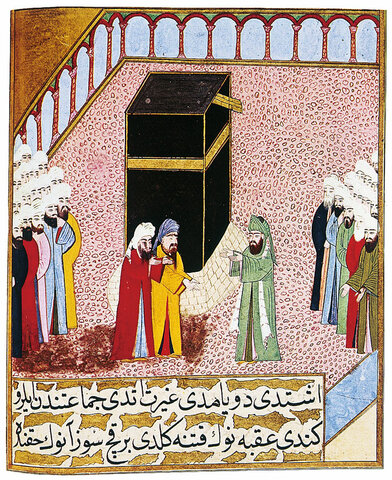 اشتدی دویامدی غیرت اتدی جماعتندن ایلرو
کندی عقبه نوك قتنه کلدی برقچ سوز آنوك حقنه